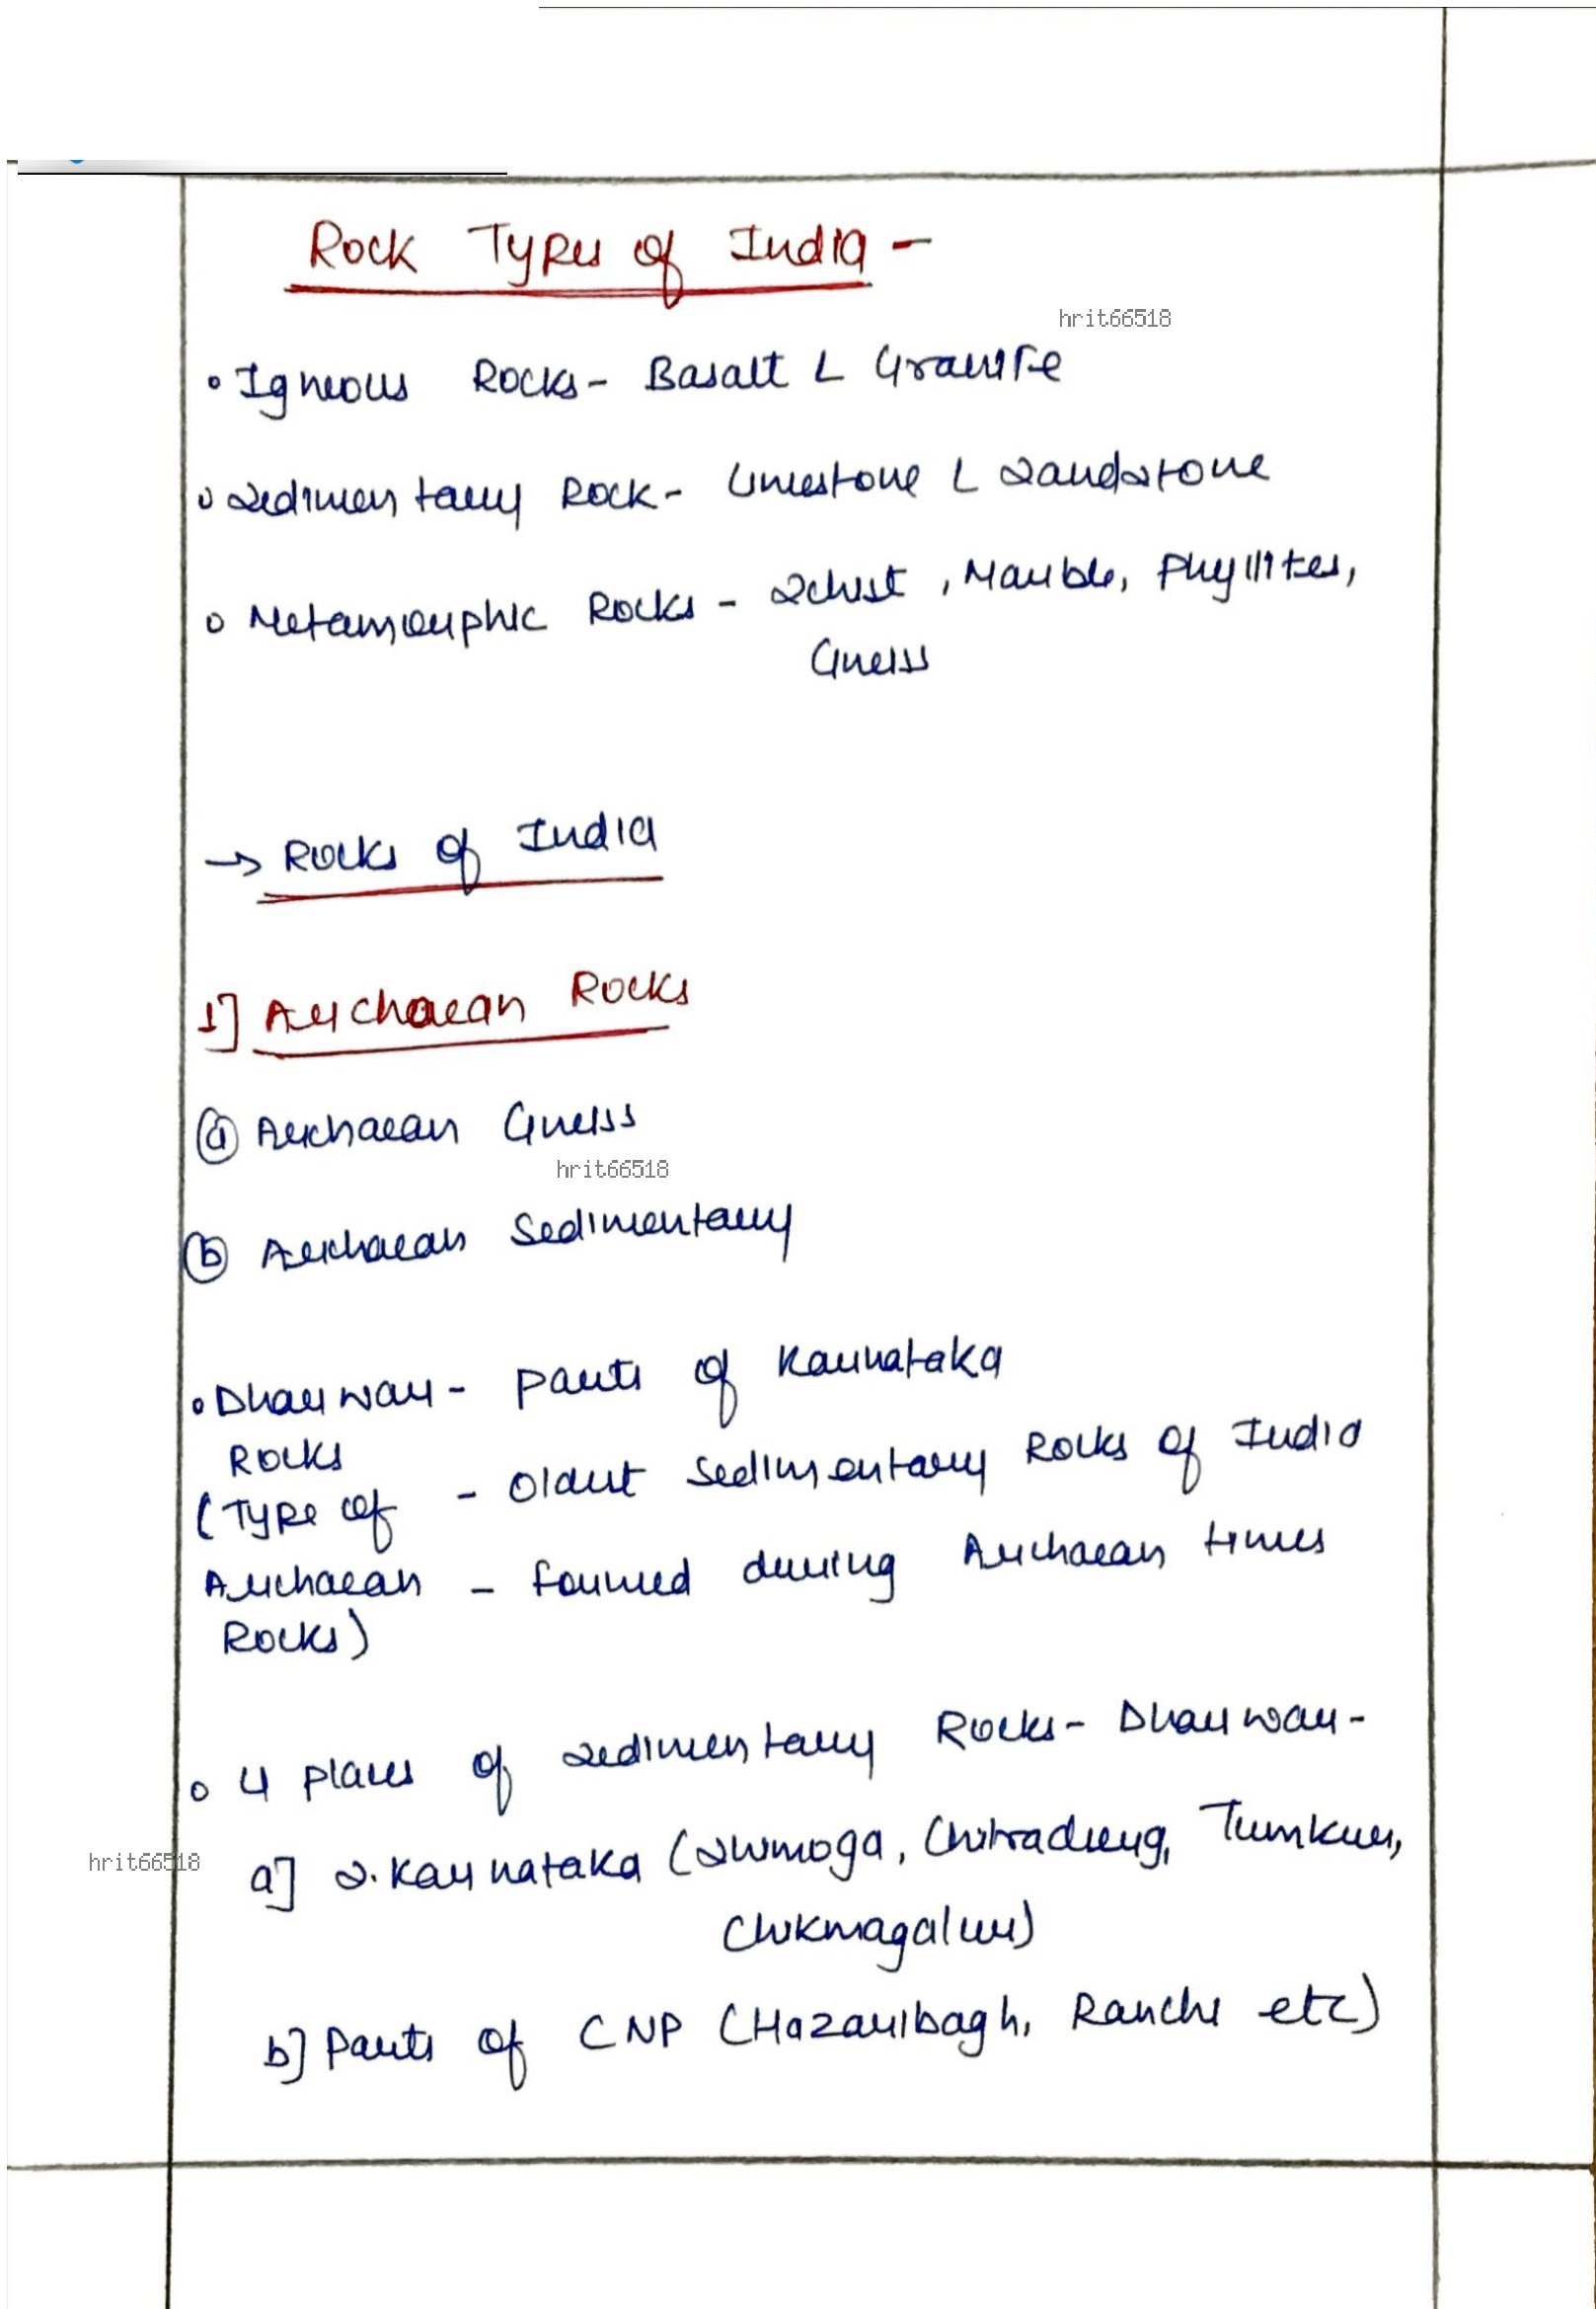 Rock Types of India -
hrit66518
• Igneous Rocks - Basalt & Granite
• Sedimentary Rock - Limestone & Sandstone
• Metamorphic Rocks - Schist, Marble, Phyllites,
Gneiss
→ Rocks of India
1] Archaean Rocks
(a) Archaean Gneiss
hrit66518
(b) Archaean Sedimentary
• Dharwar - Parts of Karnataka
Rocks
(Type of - Oldest Sedimentary Rocks of India
Archaean - formed during Archaean times
Rocks)
• 4 places of Sedimentary Rocks - Dharwar -
hrit66518
a] S. Karnataka (Shimoga, Chitradurg, Tumkur,
Chikmagalur)
b] Parts of CNP (Hazaribagh, Ranchi etc)